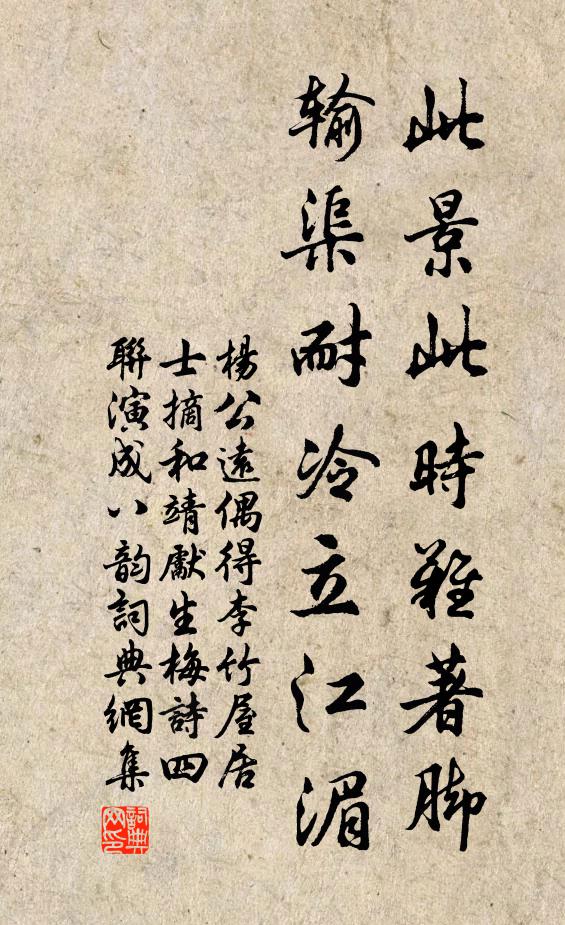 此景此時難著脚
輸渠耐冷立江湄
楊公遠偶得李竹屋居
士摘和靖獻生梅詩四
聯演成八韵詞典網集
詞典网印